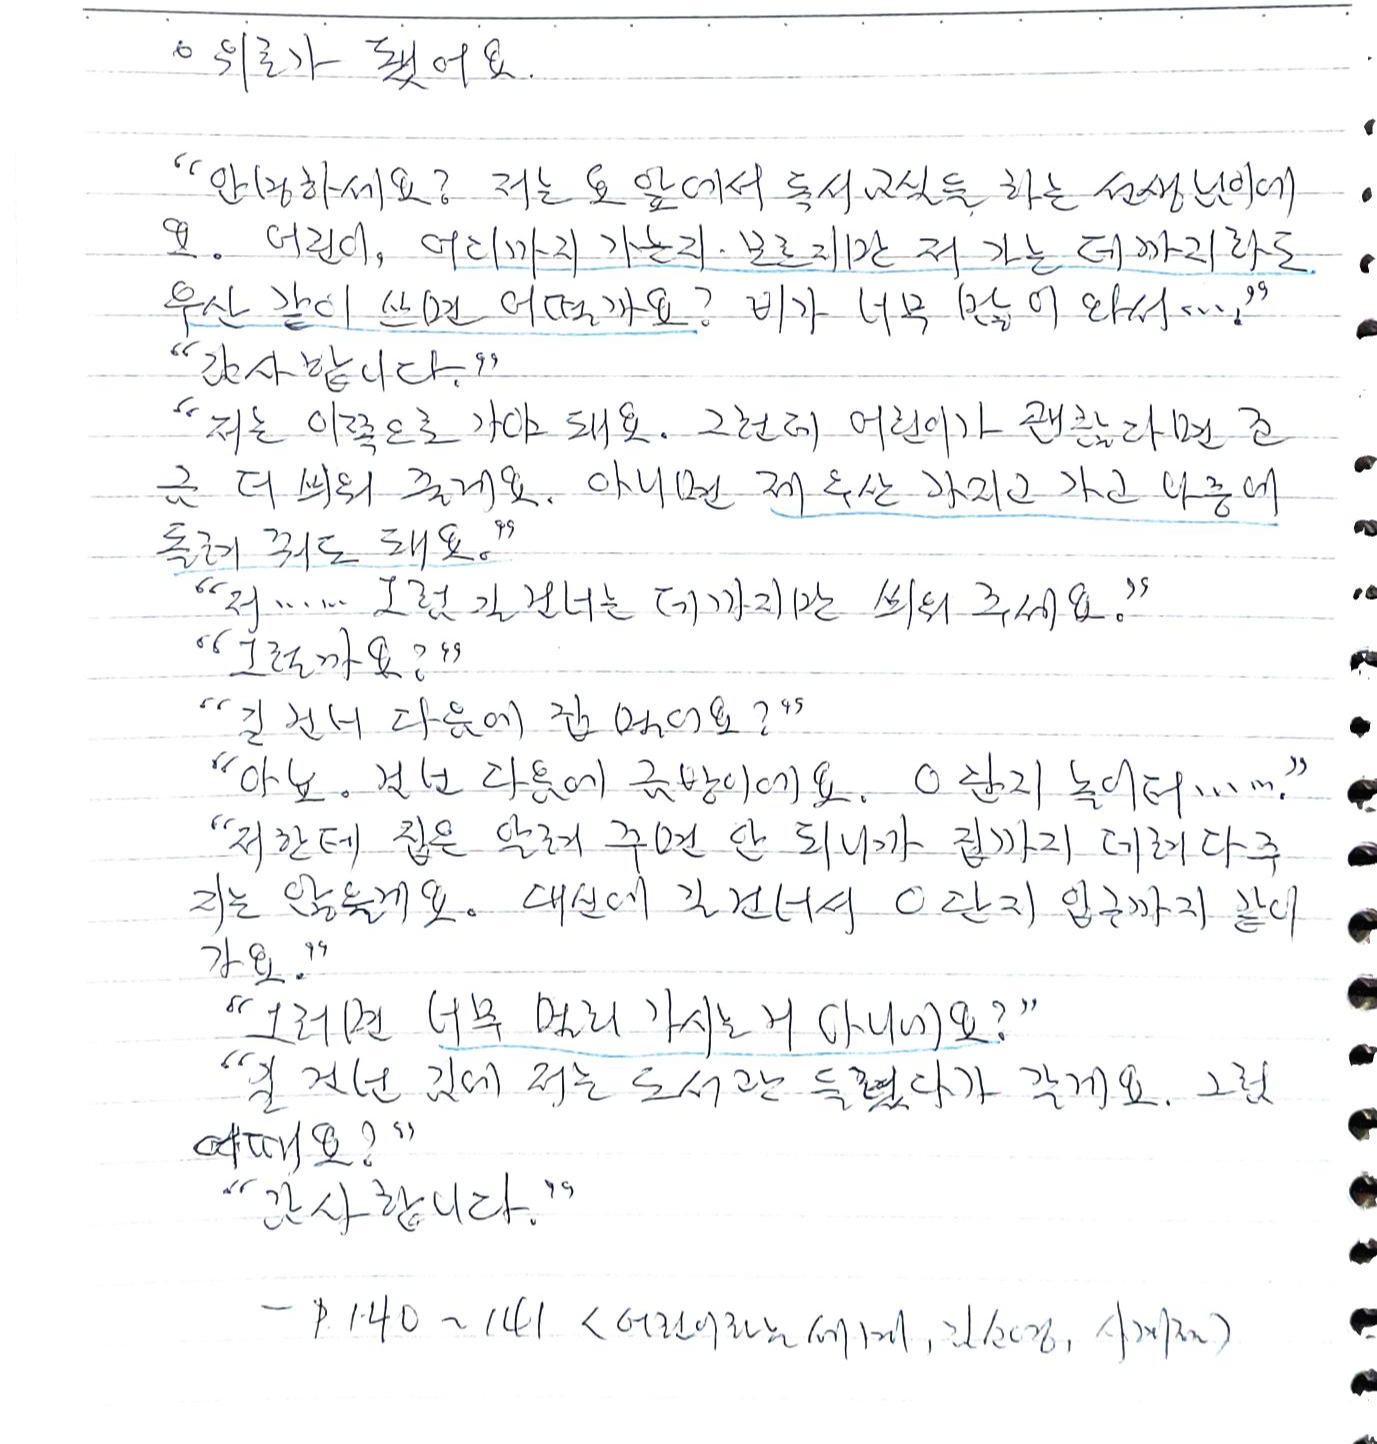 ° 위로가 됐어요.
“안녕하세요? 저는 요 앞에서 독서교실을 하는 선생님이에
요. 어린이, 어디까지 가는지 모르지만 저 가는 데까지라도
우산 같이 쓰면 어떨까요? 비가 너무 많이 와서….”
“감사합니다.”
“저는 이쪽으로 가야 돼요. 그런데 어린이가 괜찮다면 조
금 더 씌워 줄게요. 아니면 제 우산 가지고 가고 나중에
돌려 줘도 돼요.”
“저…… 그럼 길 건너는 데까지만 씌워 주세요.”
“그럴까요?”
“길 건너 다음에 집 멀어요?”
“아뇨. 건넌 다음에 금방이에요. O단지 놀이터…….”
“저한테 집은 알려 주면 안 되니까 집까지 데려다주
지는 않을게요. 대신에 길 건너서 O단지 입구까지 같이
가요.”
“그러면 너무 멀리 가시는 거 아니에요?”
“길 건넌 김에 저는 도서관 들렀다가 갈게요. 그럼
어때요?”
“감사합니다.”
- P.140 ~ 141 <어린이라는 세계, 김소영, 사계절>